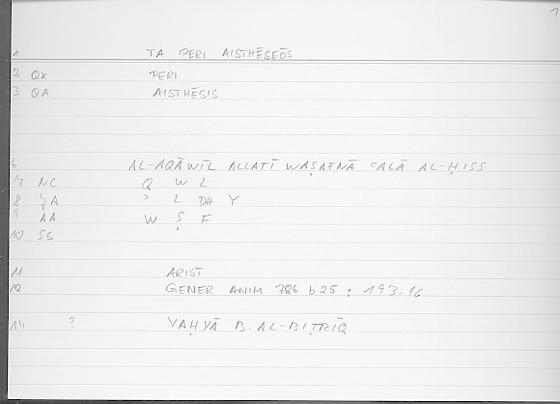 1
1 TA PERI AISTHĒSEŌS
2 QX PERI
3 QA AISTHĒSIS
6 AL-AQĀWĪL ALLATĪ WAṢAFNĀ ʿALĀ AL-ḤISS
7 NC Q W L
8 A ʾ L DH Y
9 AA W Ṣ F
10 SS
11 ARIST
12 GENER ANIM 786 b25 : 193.16
14 ? YAḤYĀ B. AL-BIṬRĪQ